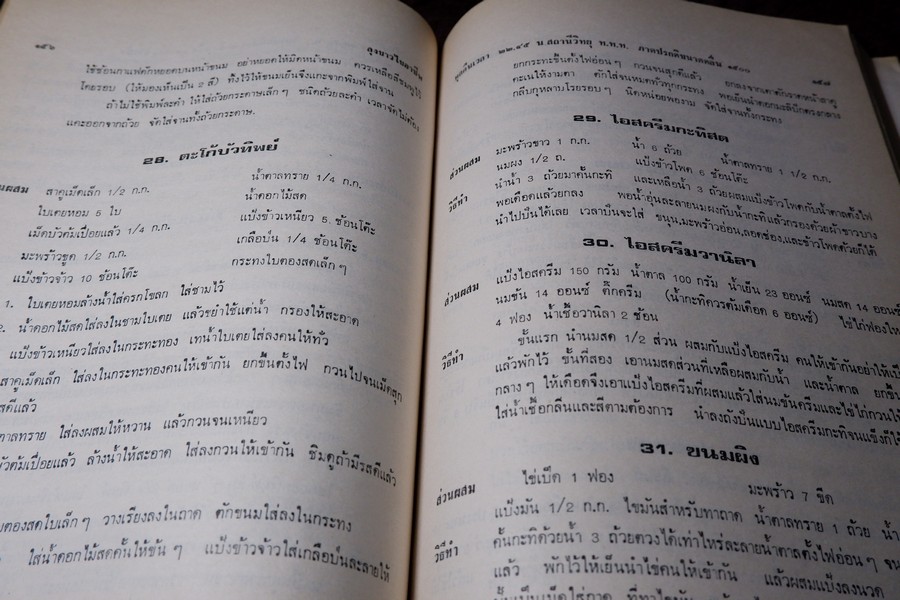 ๑๕๖
ลุงขาวไขอาชีพ
ใช้ช้อนกาแฟตักหยอดบนหน้าขนม อย่าหยอดให้มิดหน้าขนม ควรเหลือสีชมพูไว้
โดยรอบ (ให้มองเห็นเป็น 2 สี) ทิ้งไว้ให้ขนมเย็นจึงแกะจากพิมพ์ใส่จาน
ถ้าไม่ใช้พิมพ์ละคำ ให้ใส่ถ้วยกระดาษเล็กๆ ชนิดถ้วยละคำ เวลาจัดไม่ต้อง
แคะออกจากถ้วย จัดใส่จานทั้งถ้วยกระดาษ.
28. ตะโก้บัวทิพย์
สาคูเม็ดเล็ก 1/2 ก.ก. น้ำตาลทราย 1/4 ก.ก.
ใบเตยหอม 5 ใบ น้ำดอกไม้สด
เม็ดบัวต้มเปื่อยแล้ว 1/4 ก.ก. แป้งข้าวเหนียว 5 ช้อนโต๊ะ
มะพร้าวขูด 1/2 ก.ก. เกลือป่น 1/4 ช้อนโต๊ะ
แป้งข้าวจ้าว 10 ช้อนโต๊ะ กระทงใบตองสดเล็กๆ
1. ใบเตยหอมล้างน้ำใส่ครกโขลก ใส่ชามไว้
2. น้ำดอกไม้สดใส่ลงในชามใบเตย แล้วขยำใช้แต่น้ำ กรองให้สะอาด
แป้งข้าวเหนียวใส่ลงในกระทะทอง เทน้ำใบเตยใส่ลงคนให้ทั่ว
สาคูเม็ดเล็ก ใส่ลงในกระทะทองคนให้เข้ากัน ยกขึ้นตั้งไฟ กวนไปจนเม็ดสุก
แล้ว
ตาลทราย ใส่ลงผสมให้หวาน แล้วกวนจนเหนียว
บัวต้มเปื่อยแล้ว ล้างน้ำให้สะอาด ใส่ลงกวนให้เข้ากัน ชิมดูถ้ามีรสดีแล้ว
ใบตองสดใบเล็กๆ วางเรียงลงในถาด ตักขนมใส่ลงในกระทง
ใส่น้ำดอกไม้สดคั้นให้ข้นๆ แป้งข้าวจ้าวใส่เกลือป่นละลายให้
เวลา ๒๒.๔๕ น. สถานีวิทยุ ท.ท.ท. ภาคปรกติขนาดคลื่น ๑๕๗
ยกกระทะขึ้นตั้งไฟอ่อนๆ กวนจนสุกดีแล้ว
ตักใส่จานหมดทั่วทุกกระทง
กลีบกุหลาบโรยรอบๆ นิดหน่อยพองาม จัดใส่จานทั้งกระทง
29. ไอสครีมกะทิสด
ส่วนผสม มะพร้าวขาว 1 ก.ก. น้ำ 6 ถ้วย น้ำตาลทราย 1 1/2 ก.ก.
นมผง 1/2 ถ. แป้งข้าวโพด 6 ช้อนโต๊ะ
วิธีทำ นำน้ำ 3 ถ้วยมาคั้นกะทิ และเหลือน้ำ 3 ถ้วยผสมแป้งข้าวโพดกับน้ำตาลตั้งไฟ
พอเดือดแล้วยกลง พอน้ำอุ่นละลายนมผงกับน้ำกะทิแล้วกรองด้วยผ้าขาวบาง
นำไปปั่นได้เลย เวลาปั่นจะใส่ ขนุน,มะพร้าวอ่อน,ลอดช่อง,และข้าวโพดด้วยก็ได้
30. ไอสครีมวานิลา
ส่วนผสม แป้งไอสครีม 150 กรัม น้ำตาล 100 กรัม น้ำเย็น 23 ออนซ์ นมสด 14 ออนซ์
นมข้น 14 ออนซ์ ดิ๊กครีม (น้ำกะทิควรต้มเดือด 6 ออนซ์) ไข่ไก่ฟองใหญ่
4 ฟอง น้ำเชื้อวานิลา 2 ช้อน
วิธีทำ ขั้นแรก นำนมสด 1/2 ส่วน ผสมกับแป้งไอสครีม คนให้เข้ากันอย่าให้เป็น
แล้วพักไว้ ขั้นที่สอง เอานมสดส่วนที่เหลือผสมกับน้ำ และน้ำตาล ยกขึ้น
กลางๆ ให้เดือดจึงเอาแป้งไอสครีมที่ผสมแล้วใส่นมข้นครีมและไข่ไก่กวนให้
ใส่น้ำเชื้อกลิ่นและสีตามต้องการ นำลงถังปั่นแบบไอสครีมกะทิจนแข็งก็ใช้
31. ขนมผิง
ส่วนผสม ไข่เป็ด 1 ฟอง มะพร้าว 7 ขีด
แป้งมัน 1/2 ก.ก. ไขมันสำหรับทาถาด น้ำตาลทราย 1 ถ้วย น้ำ
วิธีทำ คั้นกะทิด้วยน้ำ 3 ถ้วยตวงได้เท่าไหร่ละลายน้ำตาลตั้งไฟอ่อนๆ จน
แล้ว พักไว้ให้เย็นนำไข่คนให้เข้ากัน แล้วผสมแป้งลงนวด